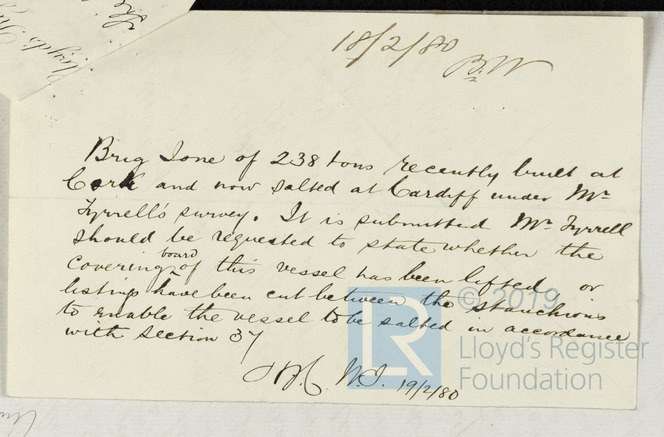 18/2/80
B.W
Brig Ione of 238 tons recently built at
Cork and now salted at Cardiff under Mr
Tyrrell's survey. It is submitted Mr Tyrrell
should be requested to state whether the
board
covering of this vessel has been lifted or
listings have been cut between the stanchions
to enable the vessel to be salted in accordance
with section 37
W.J. 19/2/80
© 2019
LR
Lloyd's Register
Foundation